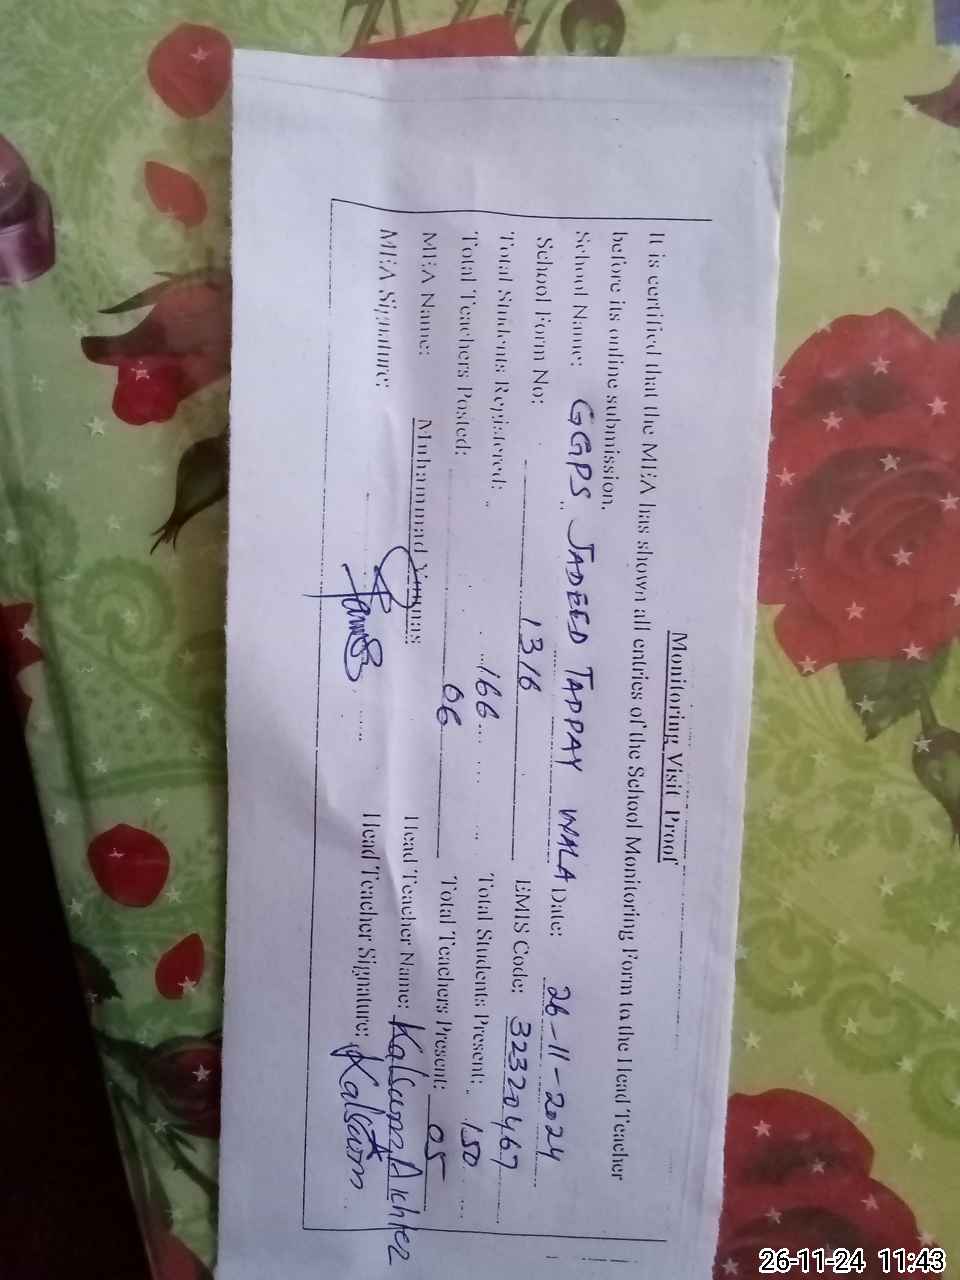 Monitoring Visit Proof
It is certified that the MEA has shown all entries of the School Monitoring Form to the Head Teacher
before its online submission.
School Name: GGPS. JADEED TAPPAY WALA Date: 26-11-2024
School Form No: 1316 EMIS Code: 32320467
Total Students Registered: 166 Total Students Present: 150
Total Teachers Posted: 06 Total Teachers Present: 05
MEA Name: Muhammad Younas Head Teacher Name: Kalsoom Akhter
MEA Signature: Head Teacher Signature: Kalsoom
26-11-24 11:43